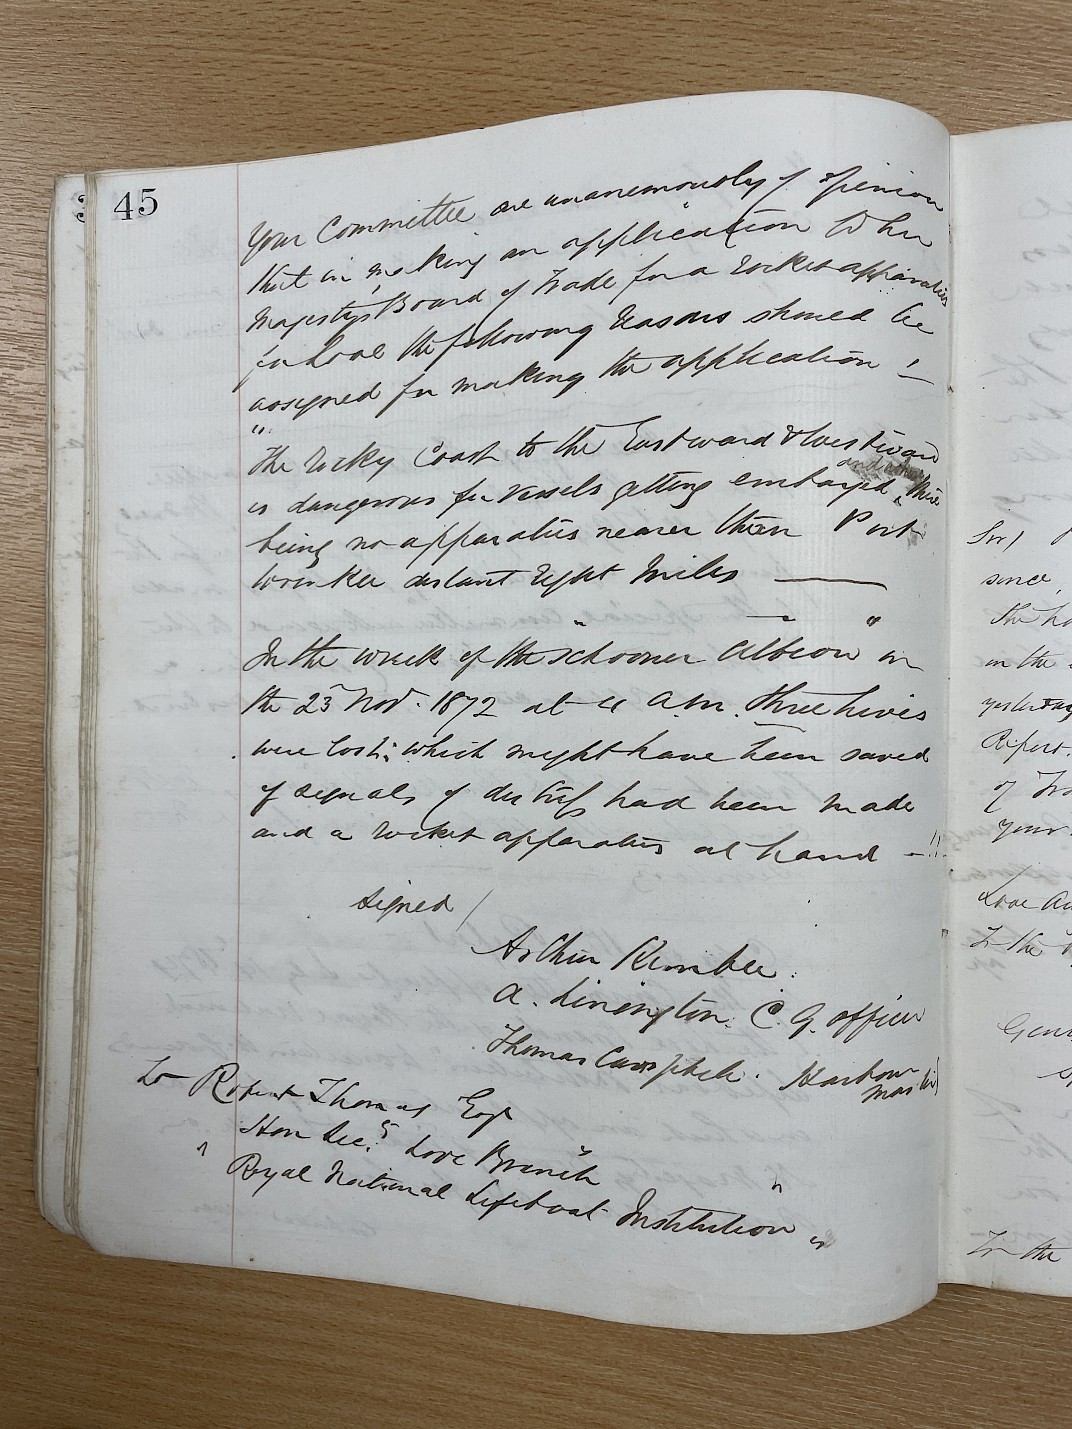 45
Your Committee are unanemously of opinion
that in making an application to her
Majestys Board of Trade for a rocket apparatus
for Looe the following reasons should be
assigned for making the application !—
"The rocky Coast to the Eastward & Westward
is dangerous for vessels getting embayed and there
being no apparatus nearer than Port
wrinkle distant Eight Miles ——
In the wreck of the schooner "Albion" on
the 23rd Novr. 1872 at 4 a.m. three lives
were lost; which might have been saved
if signals of distress had been made
and a rocket apparatus at hand —"
Signed /
Arthur
A. Linington. C. G. officer
Thomas Campbell. Harbour
Master
To Robert Thomas Esqr
Hon Secy. Looe Branch
" Royal National Lifeboat Institution "
Sir /
since,
the
in the
yesterday
Report
of
your
Looe
To the
To the